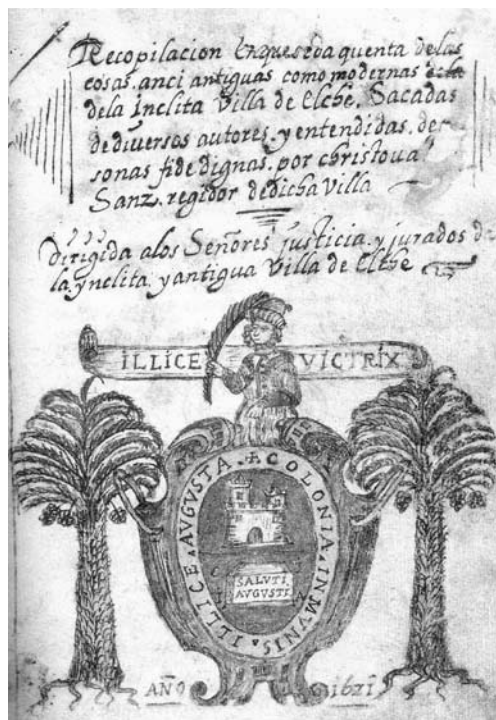 Recopilacion Enquese da quenta delas
cosas. anci antiguas como modernas
dela ynclita Villa de Elche. Sacadas
de diversos autores. y entendidas.
sonas fide dignas. por christoval
Sanz. regidor dedicha villa
Dirigida alos Señores justicia. y jurados de
la ynclita. y antigua Villa de Elche
ILLICE VICTRIX
COLONIA. INMUNIS. ILLICE. AVGVSTA.
SALVTI
AVGVSTI
AÑO 1621